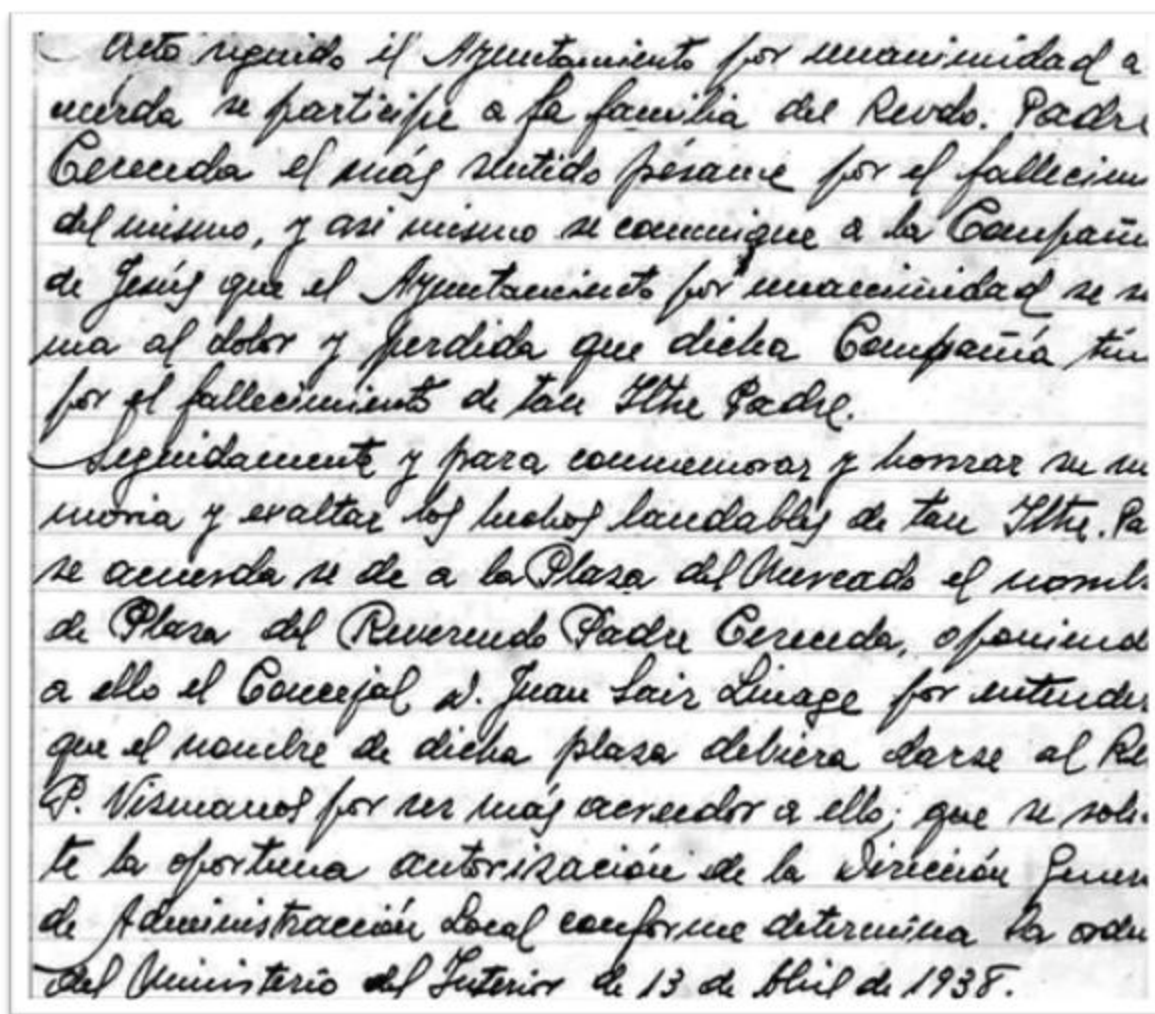 Acto seguido el Ayuntamiento por unanimidad a
cuerda se participe a la familia del Revdo. Padre
Cereceda el más sentido pésame por el fallecim
del mismo, y asi mismo se comunique a la Compañi
de Jesús que el Ayuntamiento por unanimidad se su
ma al dolor y perdida que dicha Compañía tien
por el fallecimiento de tan Iltre Padre.
Seguidamente y para conmemorar y honrar su me
moria y exaltar los hechos laudables de tan Iltre. Pa
se acuerda se de a la Plaza del Mercado el nomb
de Plaza del Reverendo Padre Cereceda, oponiend
a ello el Concejal D. Juan Saiz Linage por entender
que el nombre de dicha plaza debiera darse al Re
P. Vismanos por ser más acreedor a ello; que se soli
te la oportuna autorización de la Dirección Gener
de Administración Local conforme determina la orde
del Ministerio del Interior de 13 de Abril de 1938.